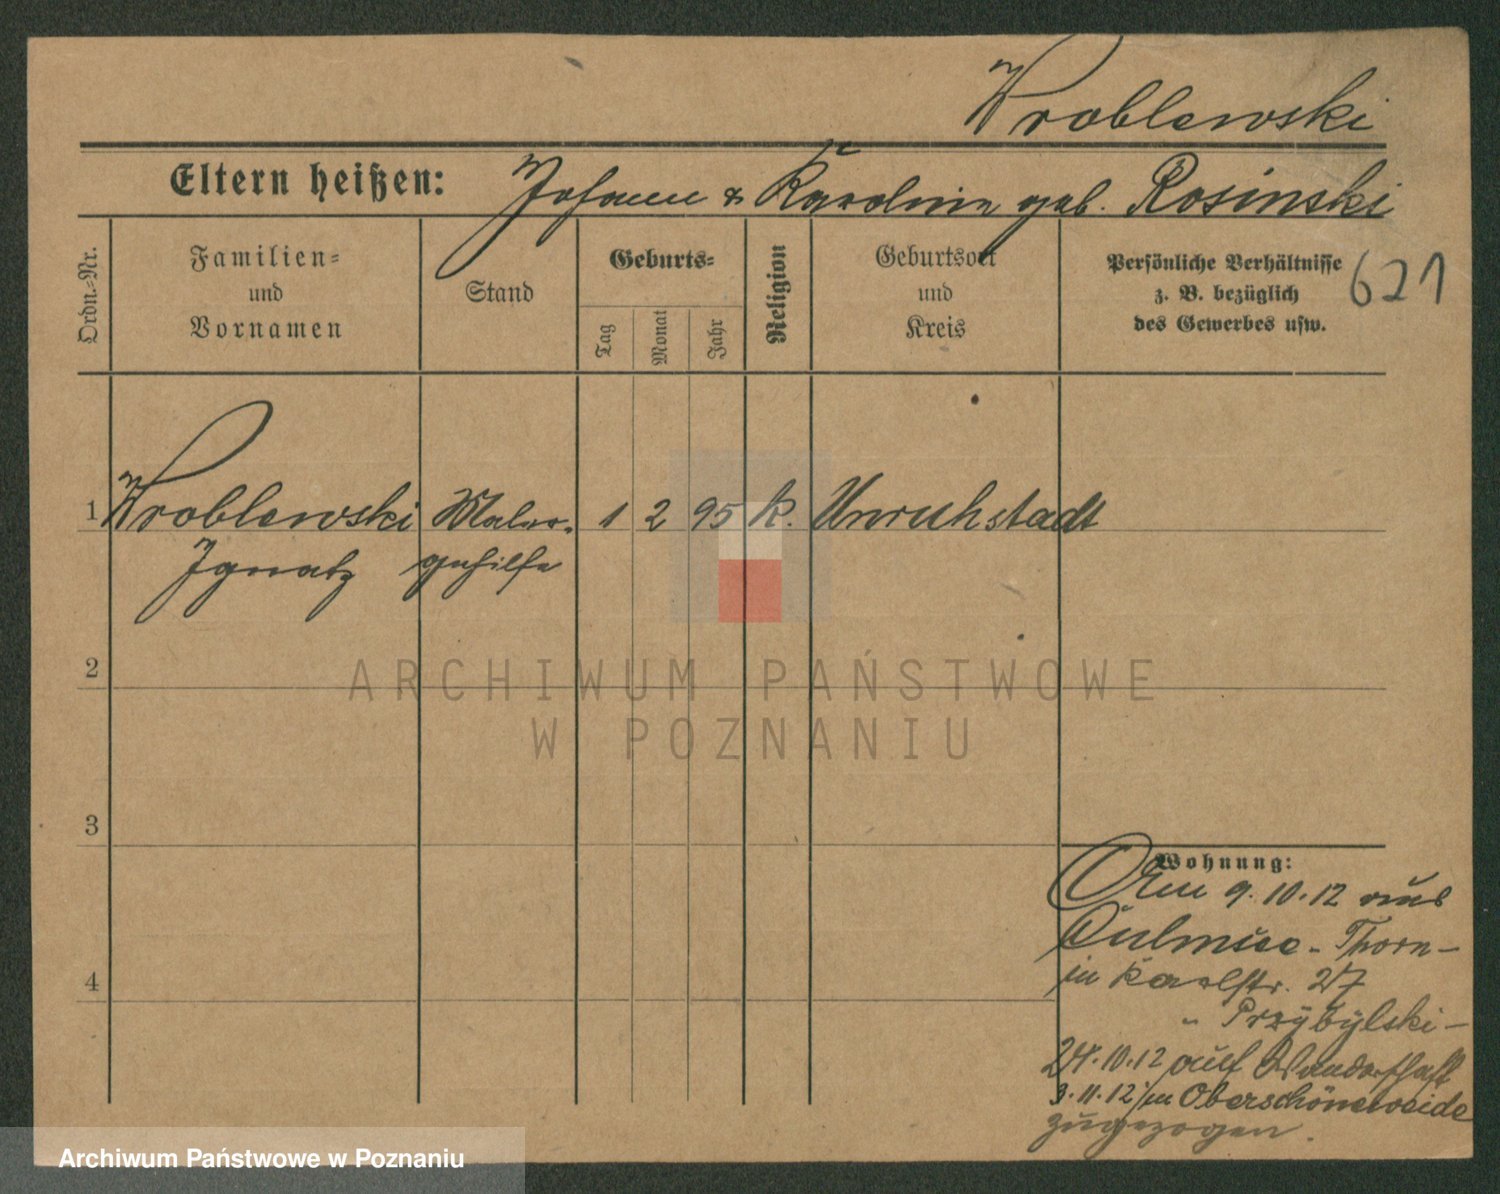 Wroblewski
Eltern heißen: Johann & Karoline geb. Rosinski
Ordn.-Nr.
Familien-
und
Vornamen
Stand
Geburts-
Tag
Monat
Jahr
Religion
Geburtsort
und
Kreis
Persönliche Verhältnisse
z. B. bezüglich
des Gewerbes usw.
621
1 Wroblewski Maler- 1 2 95 k. Unruhstadt
Ignatz gehilfe
2
3
4
Wohnung:
Am 9.10.12 aus
Culmsee - Thorn -
in Karlstr. 27
" Przybylski -
24.10.12 auf Wanderschaft
9.11.12 in Oberschöneweide
zugezogen.
ARCHIWUM PAŃSTWOWE
W POZNANIU
Archiwum Państwowe w Poznaniu